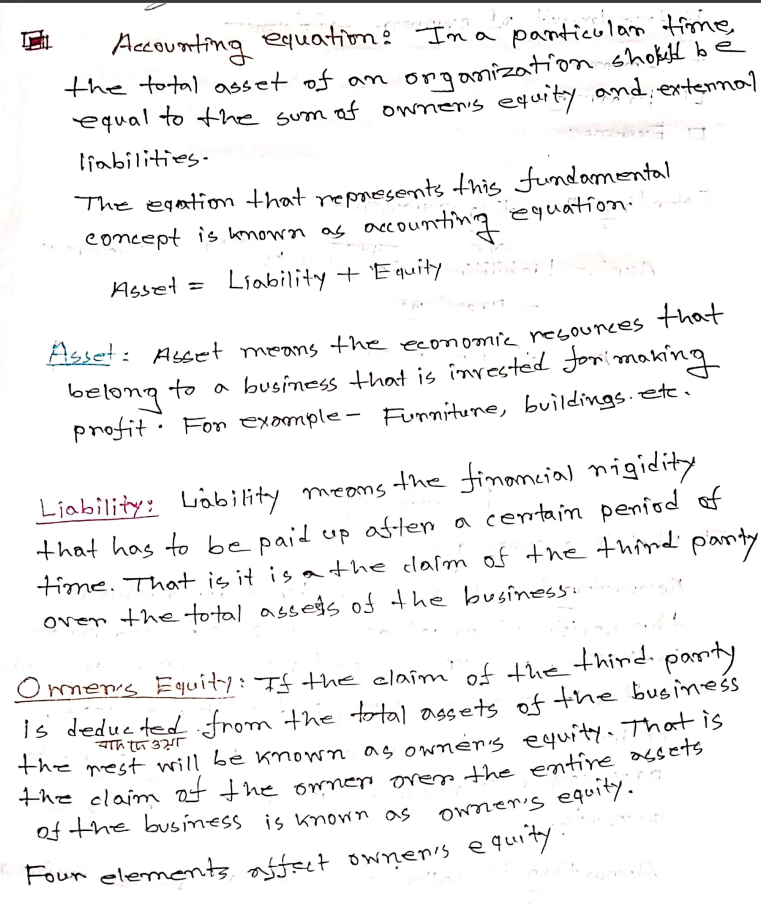 Accounting equation: In a particular time,
the total asset of an organization should be
equal to the sum of owner's equity and external
liabilities.
The eqation that represents this fundamental
concept is known as accounting equation.
Asset = Liability + Equity
Asset: Asset means the economic resources that
belong to a business that is invested for making
profit. For example - Furniture, buildings. etc.
Liability: Liability means the financial rigidity
that has to be paid up after a certain period of
time. That is it is a the claim of the third party
over the total assets of the business.
Owner's Equity: If the claim of the third party
is deducted from the total assets of the business
the rest will be known as owner's equity. That is
the claim of the owner over the entire assets
of the business is known as owner's equity.
Four elements affect owner's equity.